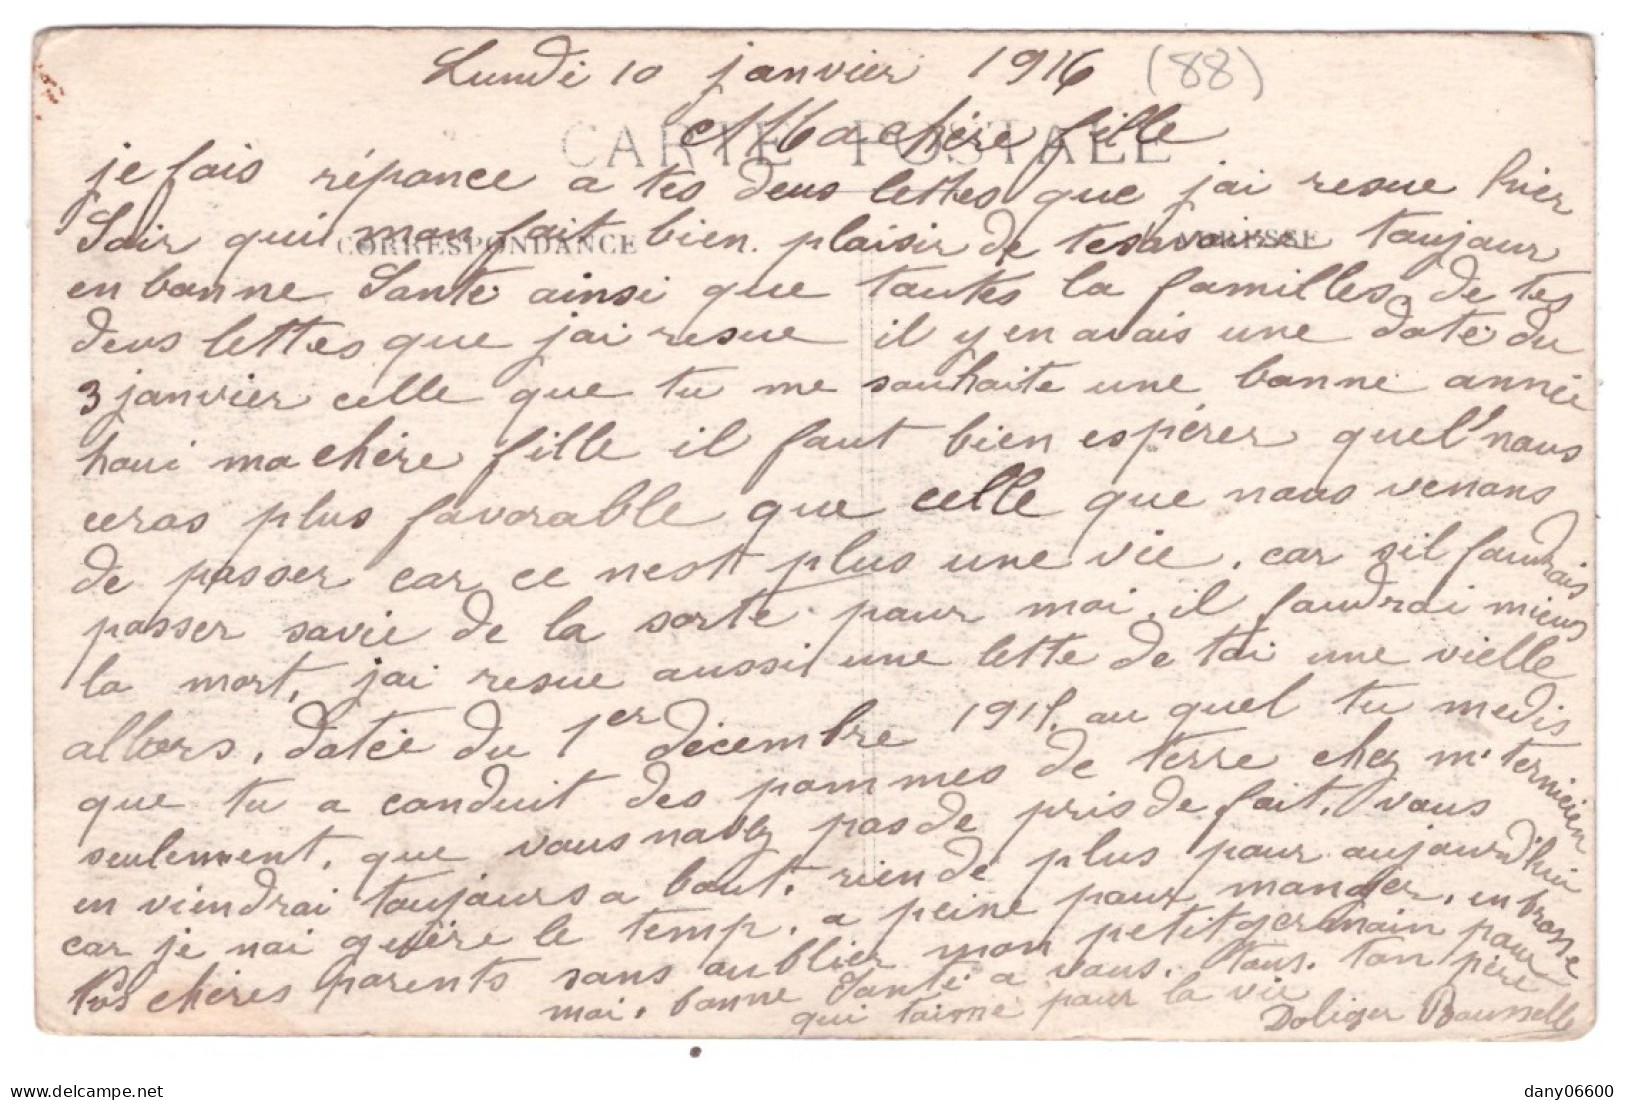 Lundi 10 janvier 1916 (88)
CARTE POSTALE
Ma chère fille
je fais répance a tes deus lettes que jai resue hier
CORRESPONDANCE ADRESSE
Soir qui man fait bien plaisir de tesavoire toujour
en bonne Santé ainsi que toutes la familles de tes
deus lettes que jai resue il y en avais une daté du
3 janvier celle que tu me souhaite une bonne année
houi ma chère fille il faut bien espérer quel nous
ceras plus favorable que celle que nous venons
de passer car ce nest plus une vie, car sil faudrais
passer savie de la sorte pour moi, il faudrai mieus
la mort, jai resue aussi une lette de toi une vielle
allors, datée du 1er décembre 1915, au quel tu medis
que tu a conduit des pommes de terre chez mr
seulement, que vous navez pas de pris de fait, vous
en viendrai toujours a bout, rien de plus pour aujourd'hui
car je nai guère le temp, a peine pour manger, en brasse
tes chères parents sans oublier mon petit germain pour
moi, bonne Santé a vous tous, ton père
qui taime pour la vie
Doliger
dany06600